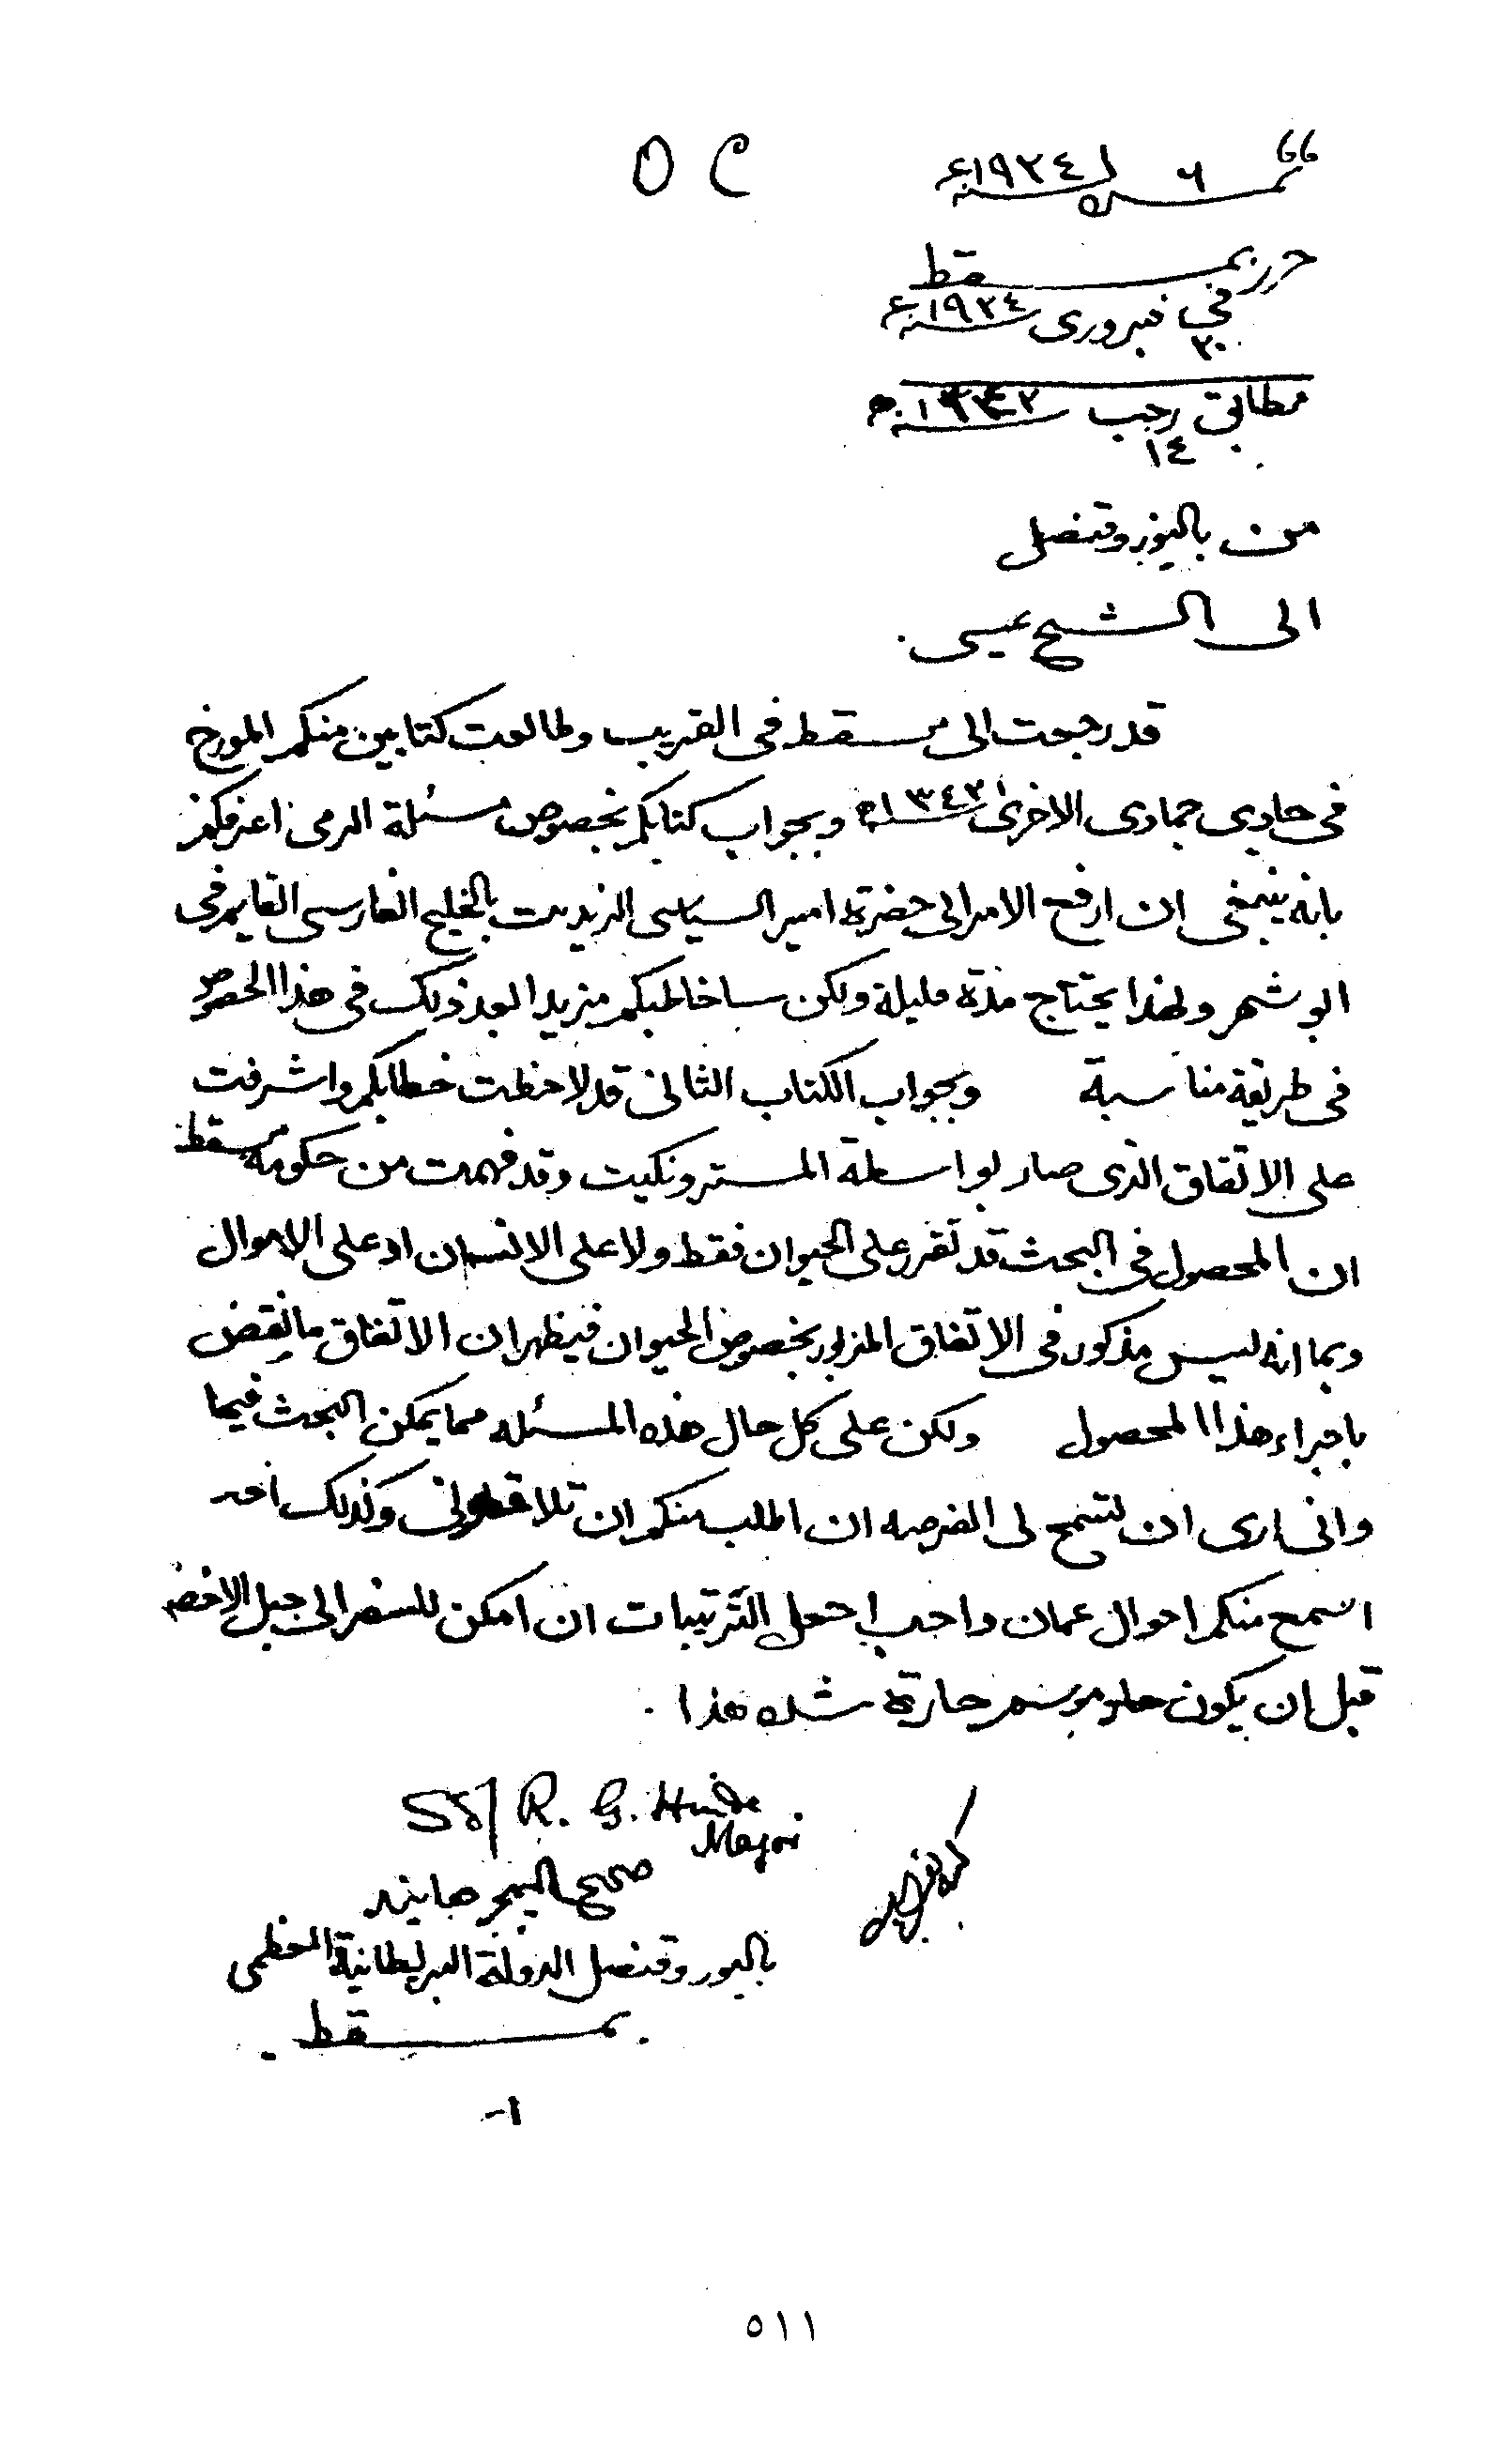 نمره ٦ لسنة ١٩٢٤ع
O C
حرر بمسقط
في ٢٠ فبروری سنة ١٩٢٤ع
مطابق ١٤ رجب سنة ١٣٤٢ه
من باليوز وقنصل
الى الشيخ عيسى.
قد رجعت الى مسقط فى القريب وطالعت كتابين منكم المورخ
فى حادي جمادى الاخرى سنة ١٣٤٢ه وبجواب كتابكم بخصوص مسئلة الرمى اعرفكم
بانه ينبغى ان ارفع الامر الى حضرة امير السياسى الزيدنت بالخليج الفارسى القايم فى
ابوشهر ولهذا يحتاج مدة قليلة ولكن ساخاطبكم مزيدا بعد ذلك فى هذا الخصوص
فى طريقة مناسبة وبجواب الكتاب الثانى قد لاحظت خطابكم واشرفت
على الاتفاق الذى صار بواسطة المستر ونكيت وقد فهمت من حكومة مسقط
ان المحصول فى البحث قد تقرر على الحيوان فقط ولا على الانسان او على الاموال
وبما انه ليس مذكور فى الاتفاق المزبور بخصوص الحيوان فيظهر ان الاتفاق ما نقض
باجراء هذا المحصول ولكن على كل حال هذه المسئله مما يمكن البحث فيها
وانى ارى ان تسمح لى الفرصه ان اطلب منكم ان تلاقونى وكذلك احب
اسمع منكم احوال عمان واحب اجعل الترتيبات ان امكن للسفر الى جبل الاخضر
قبل ان يكون موسم حارة شده هذا.
Sd/ R. G. Hinde
Major
صحيح الميجر هايند
باليوز وقنصل الدولة البريطانية العظمى
بمسقط
١-
٥١١